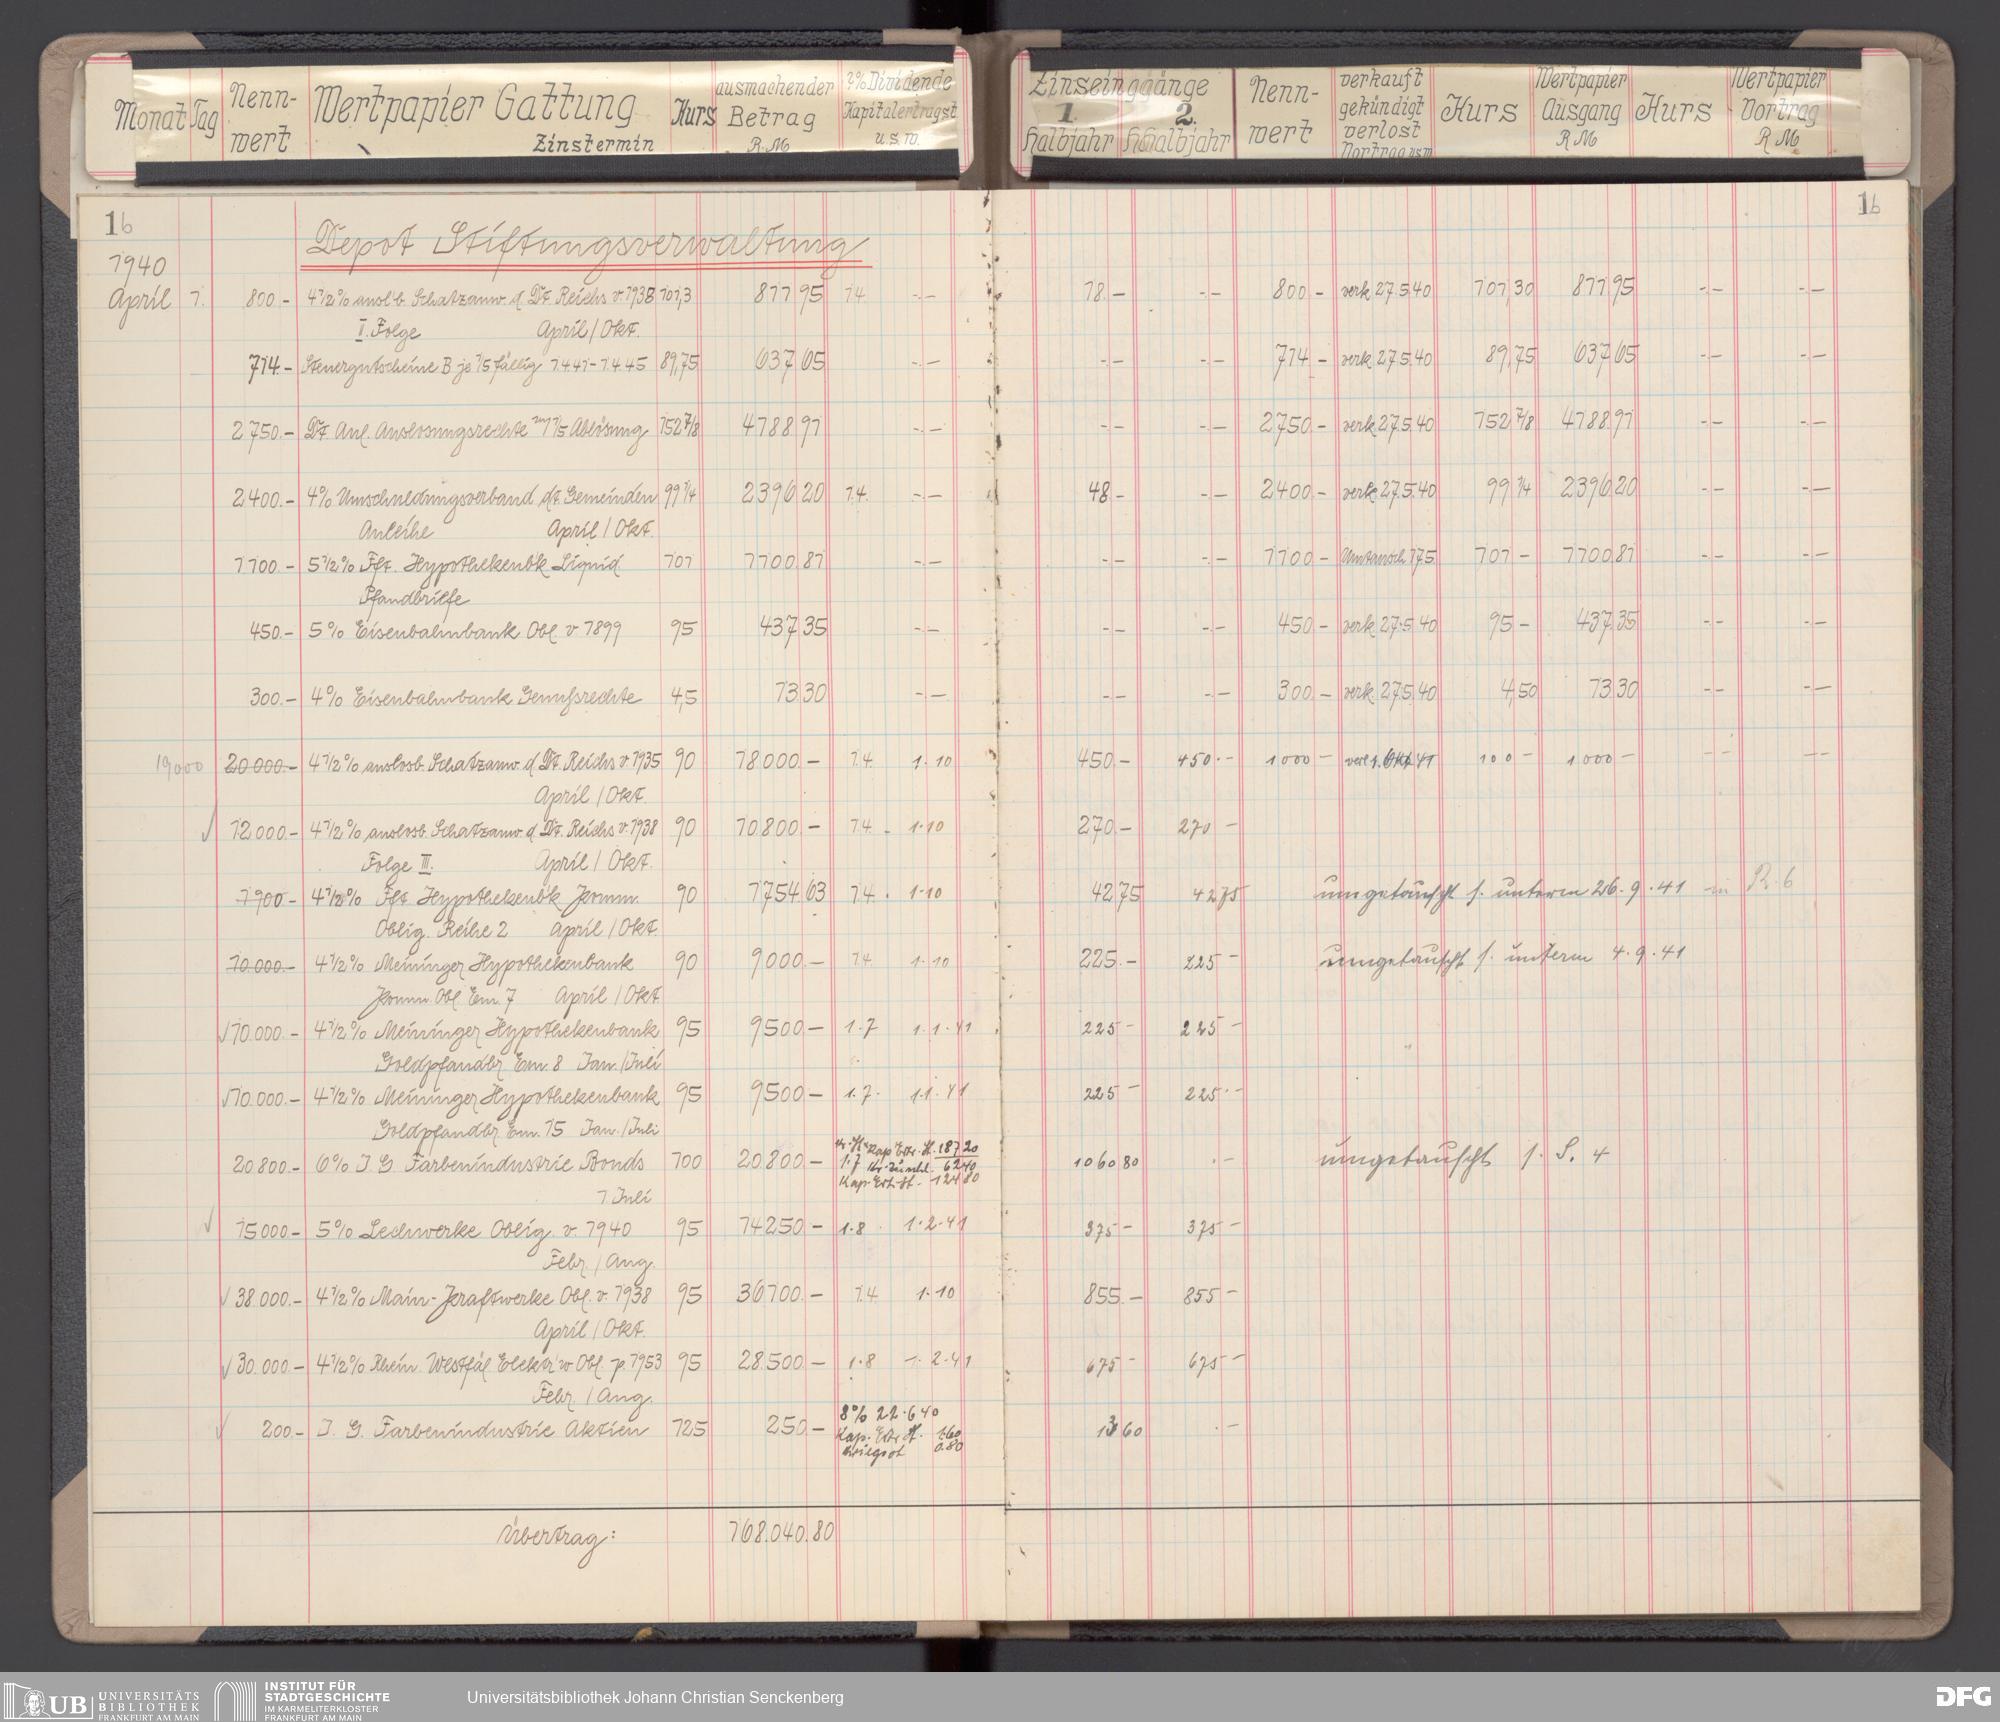 Monat Tag Nennwert Wertpapier Gattung Zinstermin Kurs ausmachender Betrag R.M % Dividende Kapitalertragst. u.s.w. Zinseinggänge 1. Halbjahr 2. Halbjahr Nennwert verkauft gekündigt verlost Vortrag usw Kurs Wertpapier Ausgang R M Kurs Wertpapier Vortrag R M
16 16
Depot Stiftungsverwaltung
1940
April 1. 800.- 4 1/2% ausl'b. Schatzanw. d. Dt. Reichs v. 1938 101,3 811 95 1.4. -.- 18.- -.- 800.- verk. 27.5.40 101,30 811 95 -.- -.-
II. Folge April / Okt.
714.- Steuergutscheine B je 1/5 fällig 1.4.41 - 1.4.45 89,75 637 65 -.- -.- -.- 714.- verk. 27.5.40 89,75 637 65 -.- -.-
2750.- Dt. Anl. Auslosungsrechte 1/5 Ablösung 152 7/8 4188 91 -.- -.- -.- 2750.- verk. 27.5.40 152 7/8 4188 91 -.- -.-
2400.- 4% Umschuldungsverband dt. Gemeinden 99 1/4 2396 20 1.4. -.- 48.- -.- 2400.- verk. 27.5.40 99 1/4 2396 20 -.- -.-
Anleihe April / Okt.
1100.- 5 1/2% Fft. Hypothekenbk Liquid 101 1100 81 -.- -.- -.- 1100.- Umtausch 101.- 1100 81 -.- -.-
Pfandbriefe
450.- 5% Eisenbahnbank Obl. v 1899 95 437 35 -.- -.- -.- 450.- verk. 27.5.40 95.- 437 35 -.- -.-
300.- 4% Eisenbahnbank Genußrechte 4,5 13 30 -.- -.- -.- 300.- verk. 27.5.40 4,50 13 30 -.- -.-
19000 20 000.- 4 1/2% auslosb. Schatzanw. d. Dt. Reichs v. 1935 90 18 000.- 1.4. 1.10 450.- 450.- 1000.- verl 1. Okt 41 100 - 1000 - -- --
April / Okt.
√ 12 000.- 4 1/2% auslosb. Schatzanw. d. Dt. Reichs v. 1938 90 10 800.- 1.4. - 1.10 270.- 270 -
Folge III. April / Okt.
1900.- 4 1/2% Fft. Hypothekenbk Komm. 90 1754 63 1.4. 1.10 42 75 42 75 umgetauscht s. unterm 26.9.41 in R. 6
Oblig. Reihe 2 April / Okt.
10.000.- 4 1/2% Meininger Hypothekenbank 90 9000.- 1.4 1.10 225.- 225 - umgetauscht s. unterm 4.9.41
Komm. Obl. Em. 7 April / Okt
√ 10.000.- 4 1/2% Meininger Hypothekenbank 95 9500.- 1.7 1.1.41 225 - 225 -
Goldpfandbr. Em. 8 Jan. / Juli
√ 10.000.- 4 1/2% Meininger Hypothekenbank 95 9500.- 1.7. 1.1.41 225 - 225.-
Goldpfandbr. Em. 15 Jan. / Juli
20 800.- 6% I G Farbenindustrie Bonds 100 20 800.- Kap Ertr. St. 187 20 1060 80 .- umgetauscht s. S. 4
1.7 Kr. Zuschl. 62 40
Kap. Ert. st. 124 80
1. Juli
√ 15 000.- 5% Lechwerke Oblig. v. 1940 95 14 250.- 1.8. 1.2.41 375 - 375 -
Febr. / Aug.
√ 38.000.- 4 1/2% Main-Kraftwerke Obl. v. 1938 95 36 100.- 1.4 1.10 855.- 855 -
April / Okt.
√ 30.000.- 4 1/2% Rhein. Westfäl. Elektr w Obl. p. 1953 95 28.500.- 1.8 1.2.41 675 - 675 -
Febr. / Aug.
√ 200.- I. G. Farbenindustrie Aktien 125 250.- 8% 22.6 40 13 60 .-
Kap. Ertr. St. 1.60
Kriegsst 0.80
Übertrag: 168.040.80
UB UNIVERSITÄTS
BIBLIOTHEK
FRANKFURT AM MAIN
INSTITUT FÜR
STADTGESCHICHTE
IM KARMELITERKLOSTER
FRANKFURT AM MAIN
Universitätsbibliothek Johann Christian Senckenberg
DFG